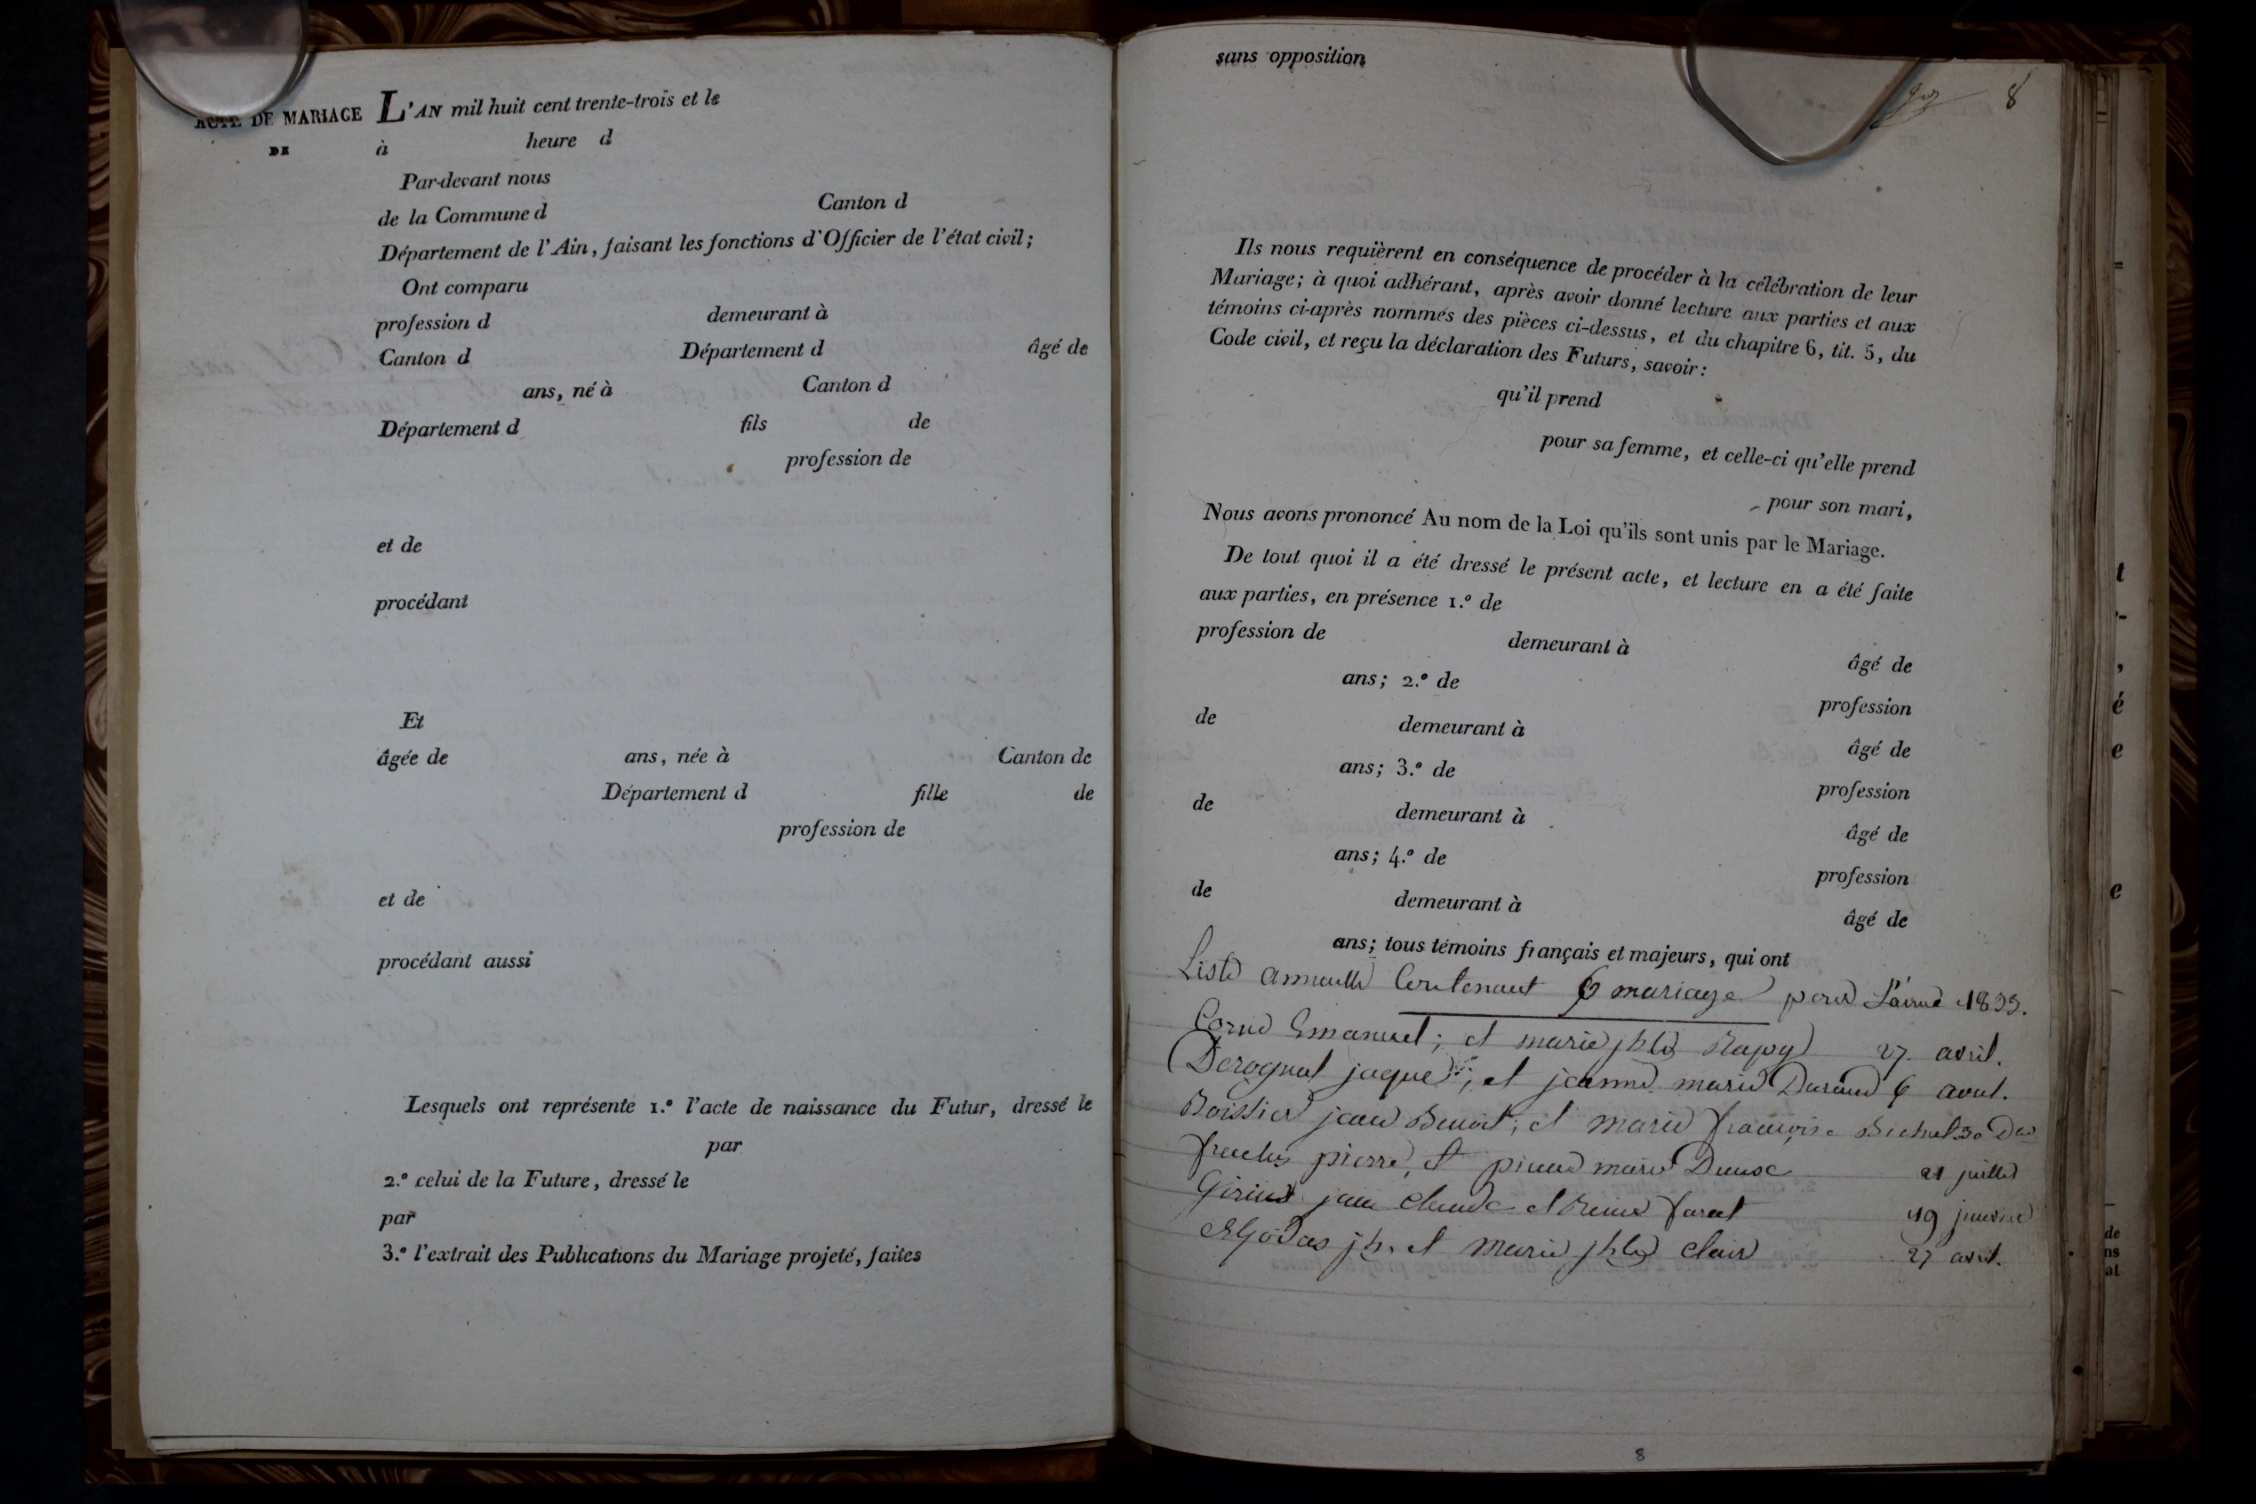 ACTE DE MARIAGE
DE
L'AN mil huit cent trente-trois et le
à heure d
Par-devant nous
de la Commune d Canton d
Département de l'Ain, faisant les fonctions d'Officier de l'état civil;
Ont comparu
profession d demeurant à
Canton d Département d âgé de
ans, né à Canton d
Département d fils de
profession de
et de
procédant
Et
âgée de ans, née à Canton de
Département d fille de
profession de
et de
procédant aussi
Lesquels ont représenté 1.º l'acte de naissance du Futur, dressé le
par
2.º celui de la Future, dressé le
par
3.º l'extrait des Publications du Mariage projeté, faites
sans opposition
8
Ils nous requièrent en conséquence de procéder à la célébration de leur
Mariage; à quoi adhérant, après avoir donné lecture aux parties et aux
témoins ci-après nommés des pièces ci-dessus, et du chapitre 6, tit. 5, du
Code civil, et reçu la déclaration des Futurs, savoir:
qu'il prend
pour sa femme, et celle-ci qu'elle prend
pour son mari,
Nous avons prononcé Au nom de la Loi qu'ils sont unis par le Mariage.
De tout quoi il a été dressé le présent acte, et lecture en a été faite
aux parties, en présence 1.º de
profession de demeurant à âgé de
ans; 2.º de profession
de demeurant à âgé de
ans; 3.º de profession
de demeurant à âgé de
ans; 4.º de profession
de demeurant à âgé de
ans; tous témoins français et majeurs, qui ont
Liste annuelle Contenant 6 mariage pour l'année 1833.
Emanuel; et marie 27 avril.
Derognat jaque; et jeanne marie Durand 6
jean Benoit; et marie françoise 30
pierre, et marie 21 juillet
jean claude et 19 janvier
jh. et Marie clair 27 avril.
8